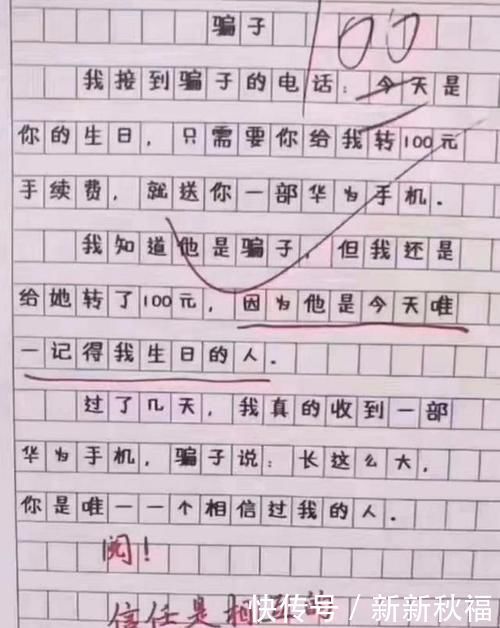 骗子
100
我接到骗子的电话：今天是
你的生日，只需要你给我转100元
手续费，就送你一部华为手机.
我知道他是骗子，但我还是
给她转了100元，因为他是今天唯
一记得我生日的人.
过了几天，我真的收到一部
华为手机，骗子说：长这么大，
你是唯一一个相信过我的人.
阅！
信任是相互的
快传号／新新秋福